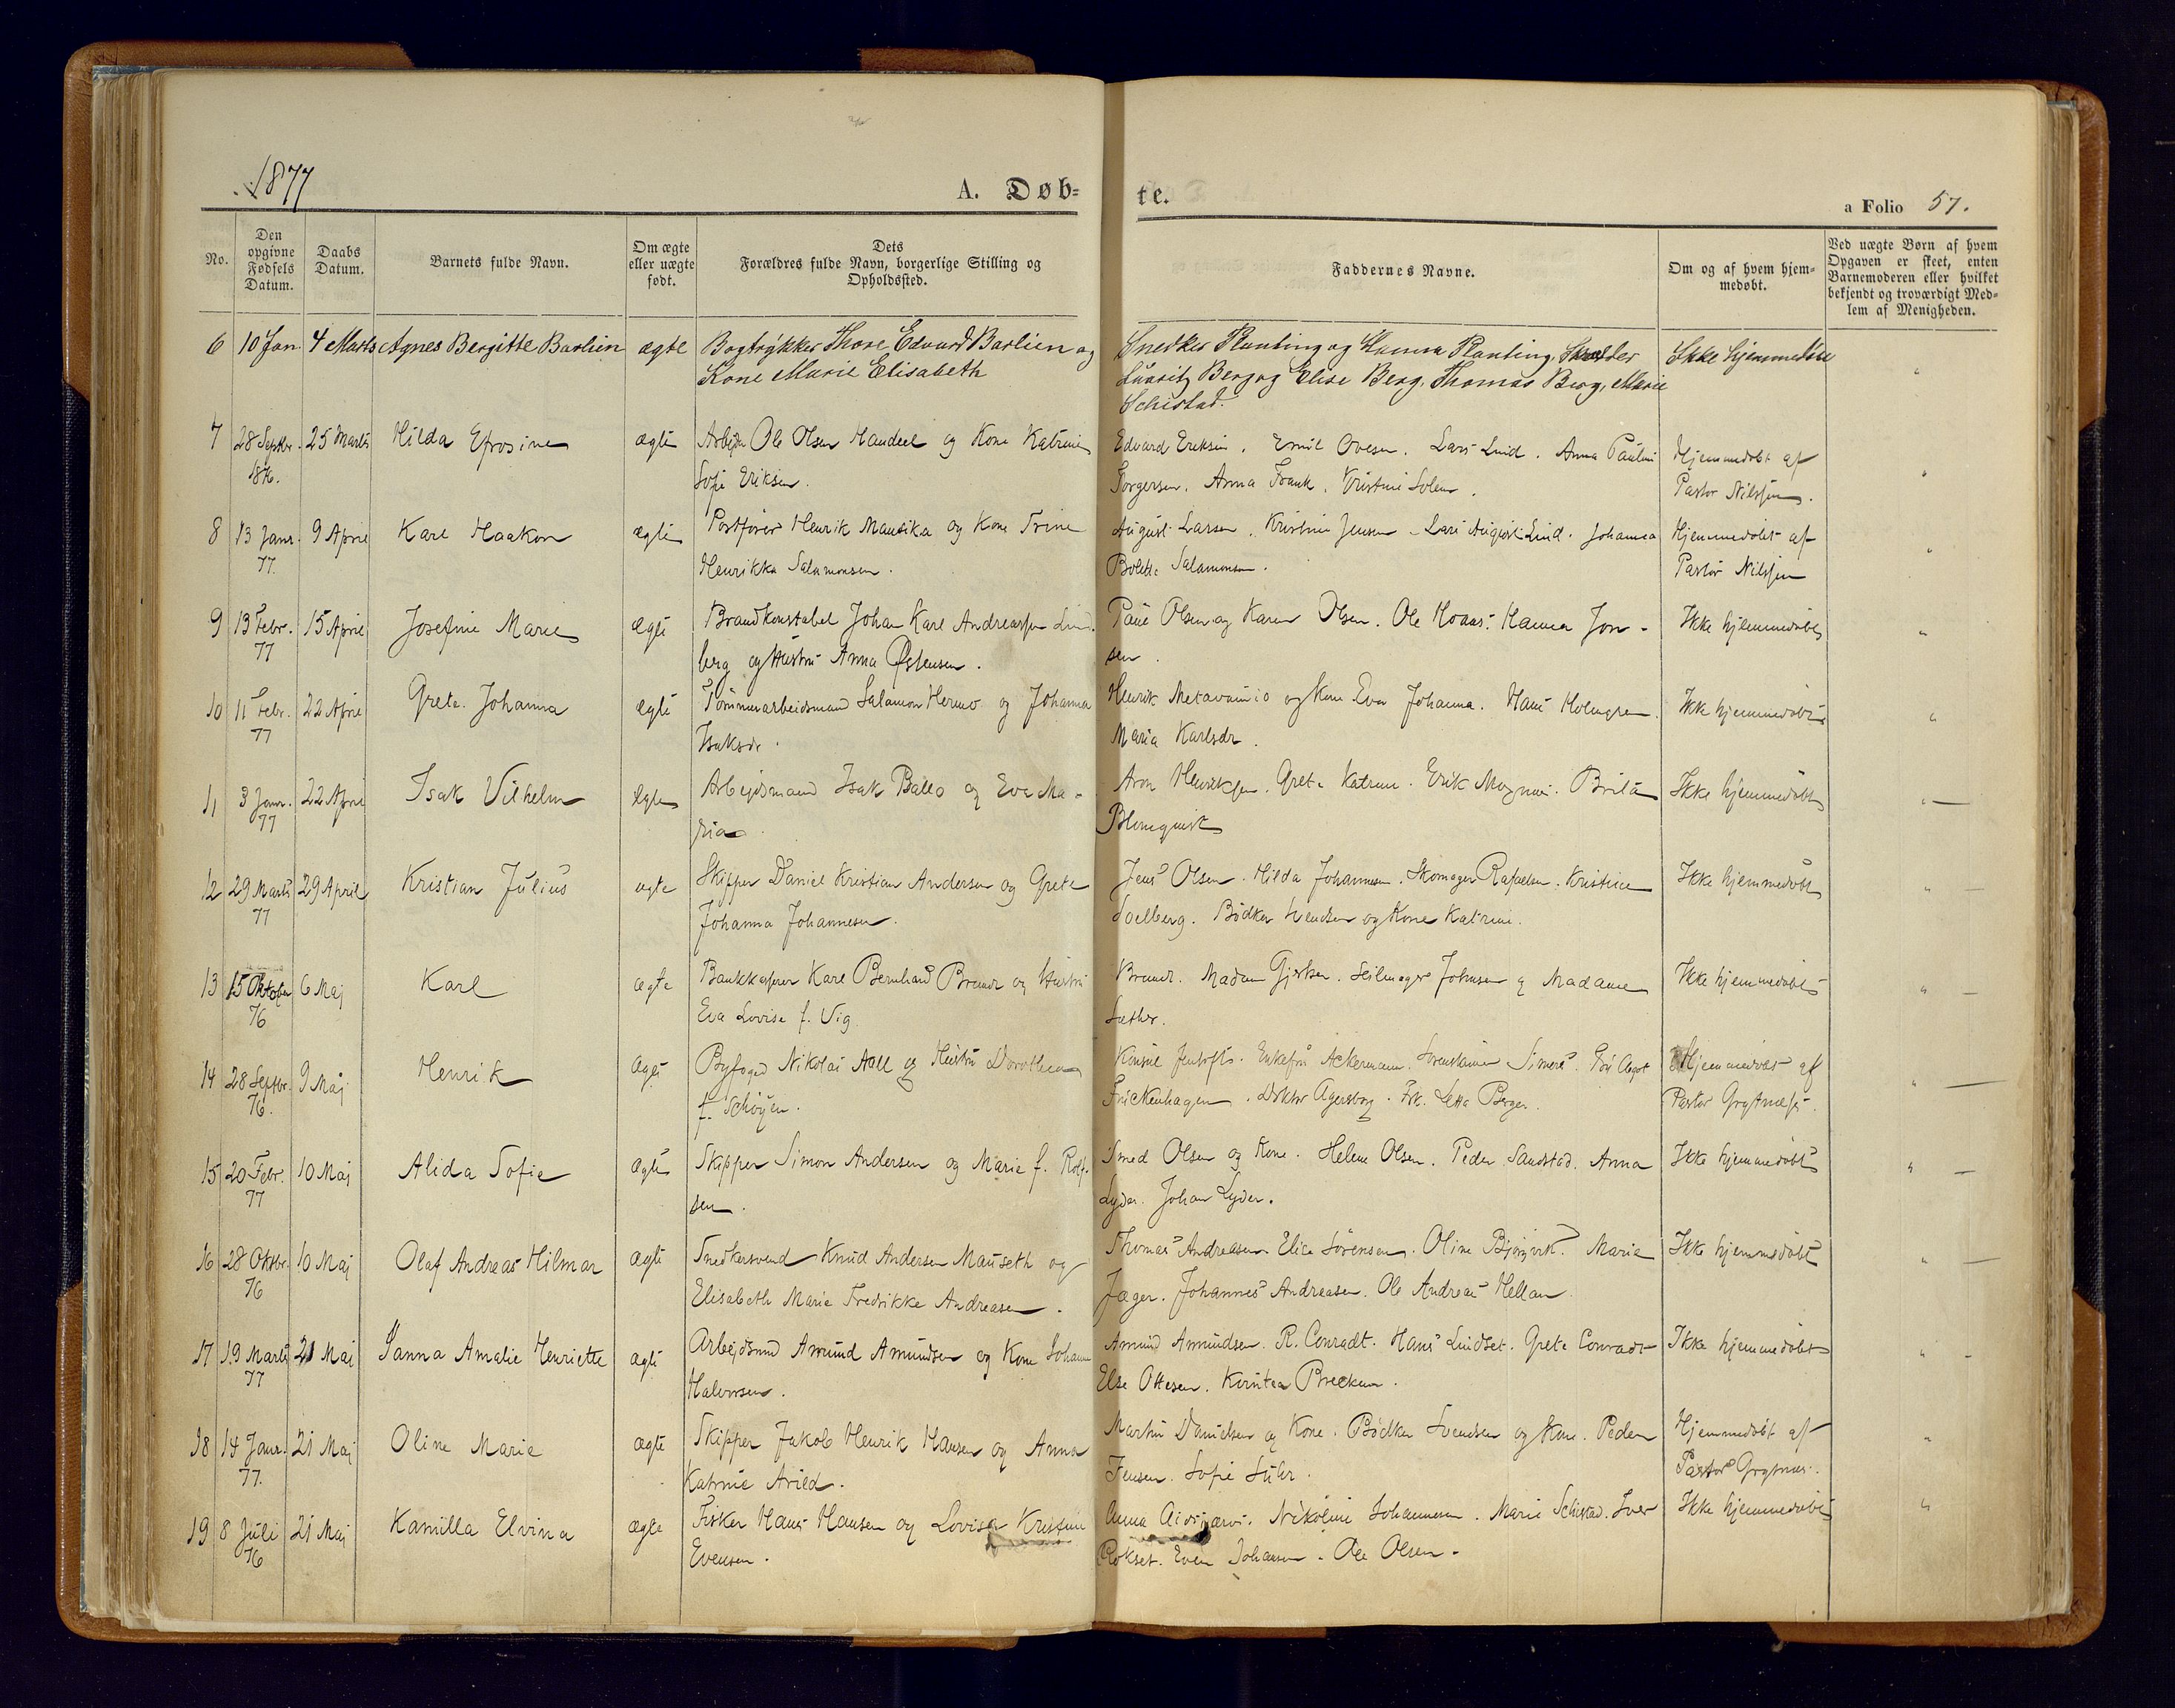 1877
A. Døb-
te.
a Folio 57.
No.
Den opgivne Fødsels Datum.
Daabs Datum.
Barnets fulde Navn.
Om ægte eller uægte født.
Dets Forældres fulde Navn, borgerlige Stilling og Opholdssted.
Faddernes Navne.
Om og af hvem hjem-medøbt.
Ved uægte Børn af hvem Opgaven er skeet, enten Barnemoderen eller hvilket bekjendt og troværdigt Med-lem af Menigheden.
6 10 Jan. 4 Marts Agnes Bergitte Barlien ægte Bogtrykker Thore Edvard Barlien og Snedker Planting og Hanna Planting, Skrædder Ikke hjemmedøbt "
Kone Marie Elisabeth Lauritz Berg og Elise Berg, Thomas Berg, Marie
Schistad.
7 28 Septbr. 25 Marts Hilda Efrosine ægte Arbejder Ole Olsen Handeel og Kone Katrine Edvard Eriksen. Emil Ovesen. Lars Lind. Anna Pauline Hjemmedøbt af "
1876. Sofi Eriksen. Torgersen. Anna Frank. Kristine Solem. Pastor Nilssen.
8 13 Janr. 9 April Karl Haakon ægte Postfører Henrik Mausika og Kone Trine August Larsen. Kristine Jensen. Lars August Lind. Johanna Hjemmedøbt af "
77. Henrikka Salamonsen. Bolette Salamonsen. Pastor Nilssen
9 13 Febr. 15 April Josefine Marie ægte Brandkonstabel Johan Karl Andreassen Lind- Paul Olsen og Karen Olsen. Ole Hoaas. Hanna Jon- Ikke hjemmedøbt "
77 berg og Hustru Anna Østensen. sen.
10 11 Febr. 22 April Grete Johanna ægte Tømmerarbeidsmand Salamon Hermo og Johanna Henrik Metavainio og Kone Eva Johanna. Hans Holmgren. Ikke hjemmedøbt "
77 Isaksdr. Maria Karlsdr.
11 3 Janr. 22 April Isak Vilhelm ægte Arbejdsmand Isak Ballo og Eva Ma- Aron Henriksen. Grete Katrine. Erik Magnus. Brita Ikke hjemmedøbt "
77 ria. Blomquist
12 29 Marts 29 April Kristian Julius ægte Skipper Daniel Kristian Andersen og Grete Jens Olsen. Hilda Johannesen. Skomager Rafaelsen. Kristine Ikke hjemmedøbt "
77 Johanna Johannesen. Soelberg. Bødker Svendsen og Kone Katrine.
13 15 Oktober 6 Maj Karl ægte Bankkasserer Karl Bernhard Brundr og Hustru Brundr. Madam Gjertsen. Seilmager Johnsen og Madame Ikke hjemmedøbt "
76 Eva Lovise f. Vig. Sæther.
14 28 Septbr. 9 Maj Henrik ægte Byfoged Nikolai Aall og Hustru Dorothea Konsul Jentoft. Enkefru Ackermann. Hjemmedøbt af "
76. f. Schöyen. Frickenhagen. Doktor Agersborg. Frk. Letta Berger. Pastor Grytnæs.
15 20 Febr. 10 Maj Alida Sofie ægte Skipper Simon Andersen og Marie f. Rolf- Smed Olsen og Kone. Helene Olsen. Peder Sandstad. Anna Ikke hjemmedøbt "
77 sen. Lyder. Johan Lyder.
16 28 Oktbr. 10 Maj Olaf Andreas Hilmar ægte Snedkersvend Knud Andersen Mauseth og Thomas Andreasen. Elise Sørensen. Oline Bjørgvik. Marie Ikke hjemmedøbt "
76 Elisabeth Marie Fredrikke Andreasen. Jæger. Johannes Andreasen. Ole Andreas Hellan.
17 19 Marts 21 Maj Sanna Amalie Henriette ægte Arbejdsmd Amund Amundsen og Kone Johanne Amund Amundsen. R. Conradt. Hans Lindset. Grete Conradt Ikke hjemmedøbt "
77 Halvorsen. Else Ottesen.
18 14 Janr. 21 Maj Oline Marie ægte Skipper Jakob Henrik Hansen og Anna Martin Danielsen og Kone. Bødker Svendsen og Kone. Peder Hjemmedøbt af "
77. Katrine Arild. Jensen. Sofie Suhr. Pastor Grytnæs.
19 8 Juli 21 Maj Kamilla Elvina ægte Fisker Hans Hansen og Lovisa Kristine Anna Aidijarvi. Nikoline Johannesen. Marie Schistad. Iver Ikke hjemmedøbt "
76 Evensen. Rokset. Even Johansen. Ole Olsen.